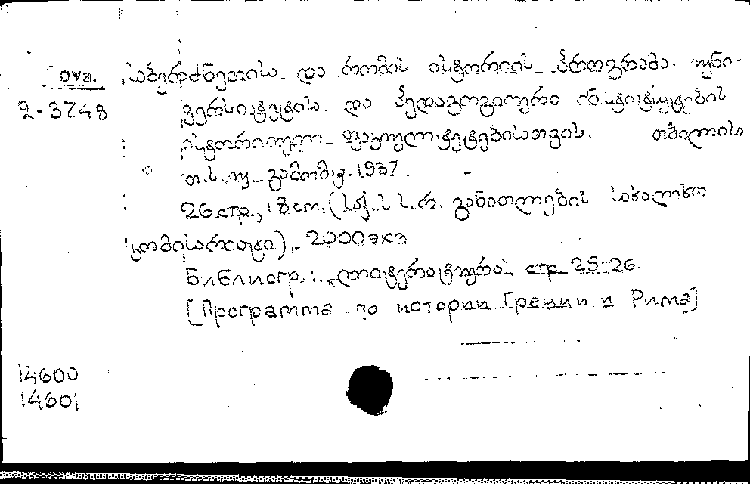 ova. საბერძნეთისა და რომის ისტორიის პროგრამა. უნი-
2-3748 ვერსიტეტისა და პედაგოგიური ინსტიტუტების
ისტორიულ ფაკულტეტებისათვის. თბილისი
თ. ს. უ. გამომც. 1937.
26 стр., 18 cm. (საქ. ს. ს. რ. განათლების სახალხო
კომისარიატი). 2000 экз
Библиогр.: „ლიტერატურა“ стр 25-26.
[Программа по истории Греции и Рима]
14600
14601